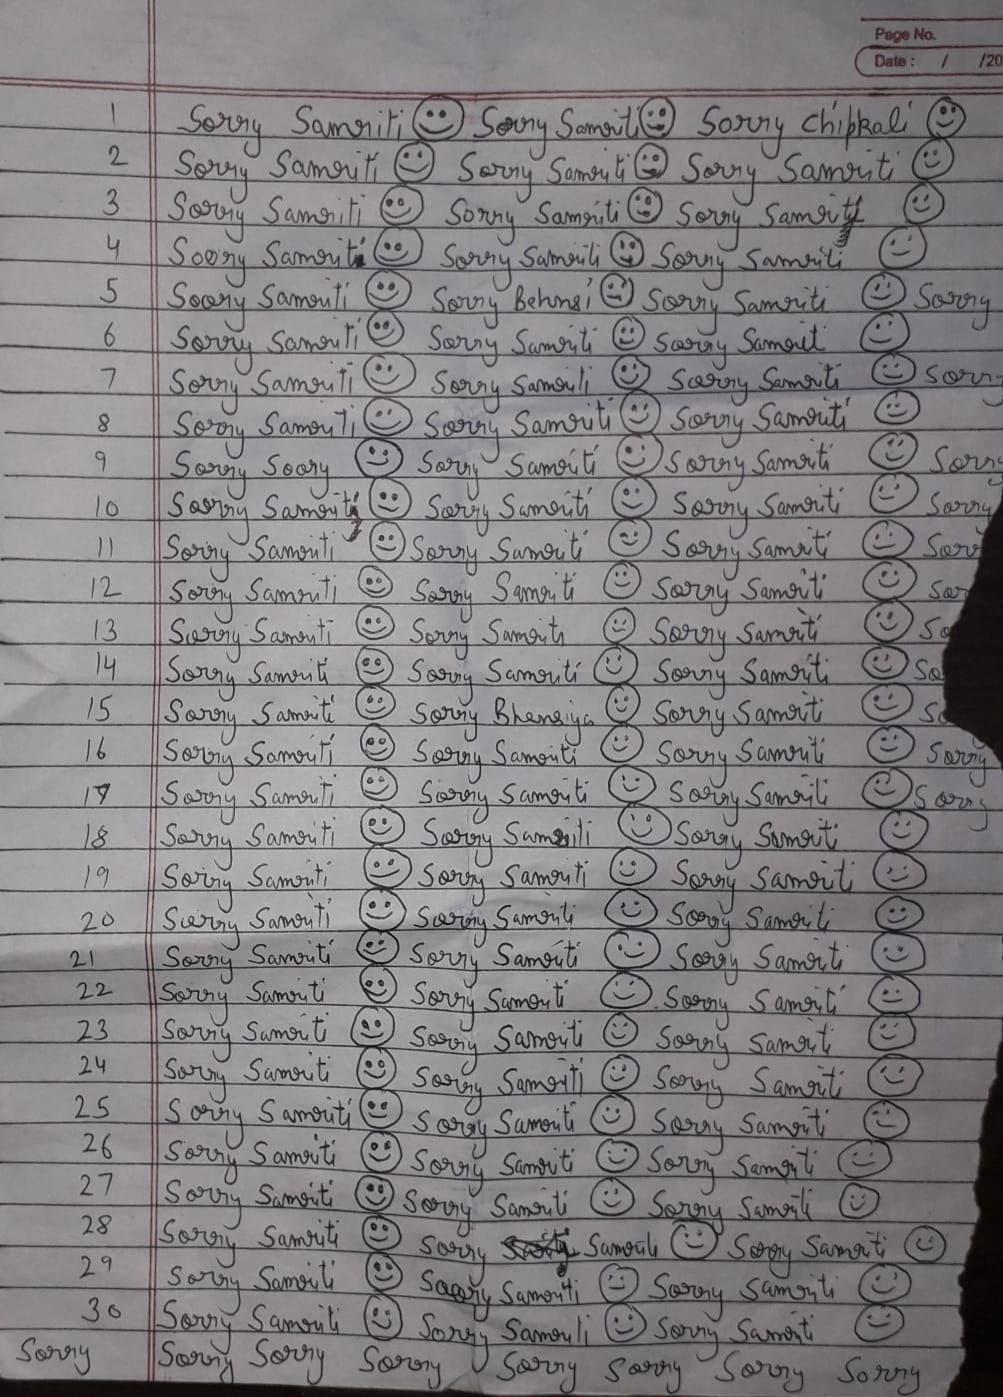 Page No.
Date : / /20
1 Sorry Samriti Sorry Samriti Sorry Chipkali
2 Sorry Samriti Sorry Samriti Sorry Samriti
3 Sorry Samriti Sorry Samriti Sorry Samriti
4 Soory Samriti Sorry Samriti Sorry Samriti
5 Soory Samriti Sorry Behnsi Sorry Samriti Sorry
6 Sorry Samriti Sorry Samriti Sorry Samrit
7 Sorry Samriti Sorry Samriti Sorry Samriti Sorry
8 Sorry Samriti Sorry Samriti Sorry Samriti
9 Sorry Soory Sorry Samriti Sorry Samriti Sorry
10 Sorry Samriti Sorry Samriti Sorry Samriti Sorry
11 Sorry Samriti Sorry Samriti Sorry Samriti Sorr
12 Sorry Samriti Sorry Samriti Sorry Samriti Sor
13 Sorry Samriti Sorry Samriti Sorry Samriti So
14 Sorry Samriti Sorry Samriti Sorry Samriti So
15 Sorry Samriti Sorry Bhensiya Sorry Samriti So
16 Sorry Samriti Sorry Samriti Sorry Samriti Sorry
17 Sorry Samriti Sorry Samriti Sorry Samriti Sorry
18 Sorry Samriti Sorry Samriti Sorry Samriti
19 Sorry Samriti Sorry Samriti Sorry Samriti
20 Sorry Samriti Sorry Samriti Sorry Samriti
21 Sorry Samriti Sorry Samriti Sorry Samriti
22 Sorry Samriti Sorry Samriti Sorry Samriti
23 Sorry Samriti Sorry Samriti Sorry Samrit
24 Sorry Samriti Sorry Samriti Sorry Samriti
25 Sorry Samriti Sorry Samriti Sorry Samriti
26 Sorry Samriti Sorry Samriti Sorry Samriti
27 Sorry Samriti Sorry Samriti Sorry Samriti
28 Sorry Samriti Sorry Samriti Sorry Samriti
29 Sorry Samriti Sorry Samriti Sorry Samriti
30 Sorry Samriti Sorry Samriti Sorry Samriti
Sorry Sorry Sorry Sorry Sorry Sorry Sorry Sorry